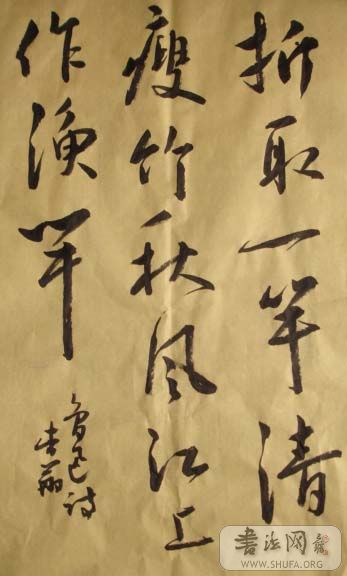 折取一竿清
瘦竹秋风江上
作渔竿
書法网
WWW.SHUFA.ORG